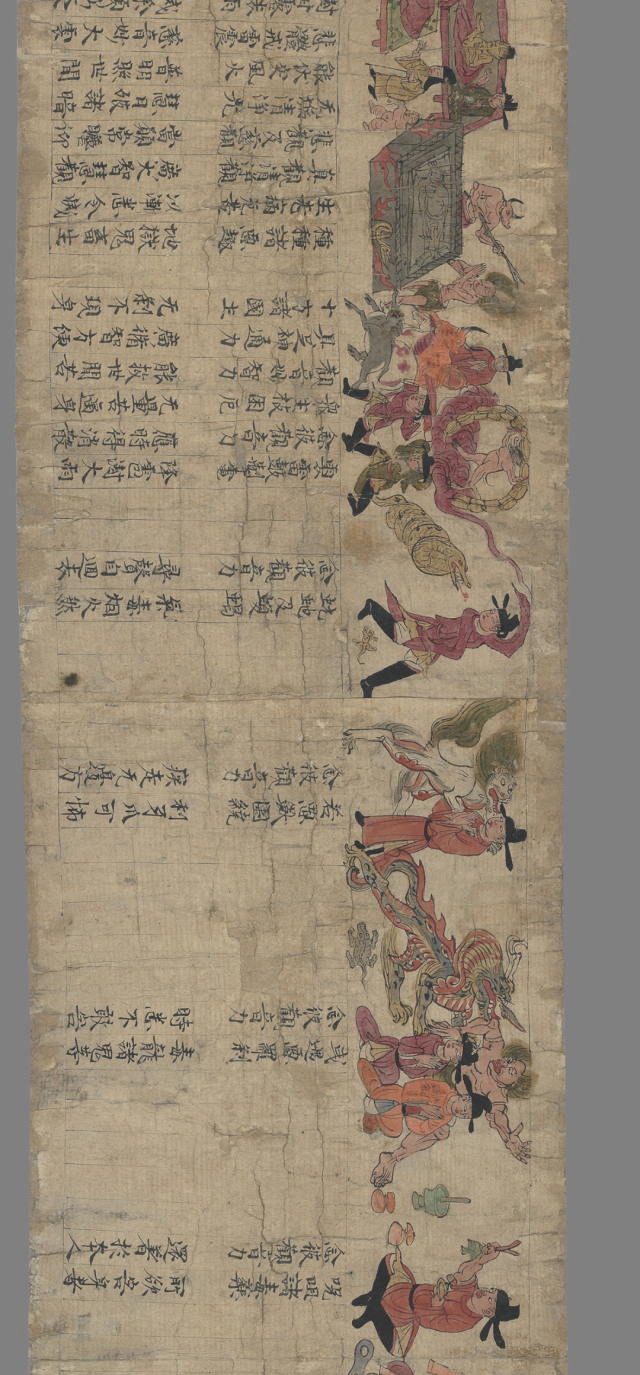 呪咀諸毒藥 所欲害身者
念彼觀音力 還著於本人
或遇惡羅剎 毒龍諸鬼等
念彼觀音力 時悉不敢害
若惡獸圍繞 利牙爪可怖
念彼觀音力 疾走无邊方
蚖蛇及蝮蝎 氣毒烟火然
念彼觀音力 尋聲自迴去
雲雷鼓掣電 降雹澍大雨
念彼觀音力 應時得消散
眾生被困厄 无量苦逼身
觀音妙智力 能救世間苦
具足神通力 廣修智方便
十方諸國土 无剎不現身
種種諸惡趣 地獄鬼畜生
生老病死苦 以漸悉令滅
真觀清淨觀 廣大智慧觀
悲觀及慈觀 常願常瞻仰
无垢清淨光 慧日破諸暗
能伏災風火 普明照世間
悲體戒雷震 慈音妙大雲
澍甘露法雨